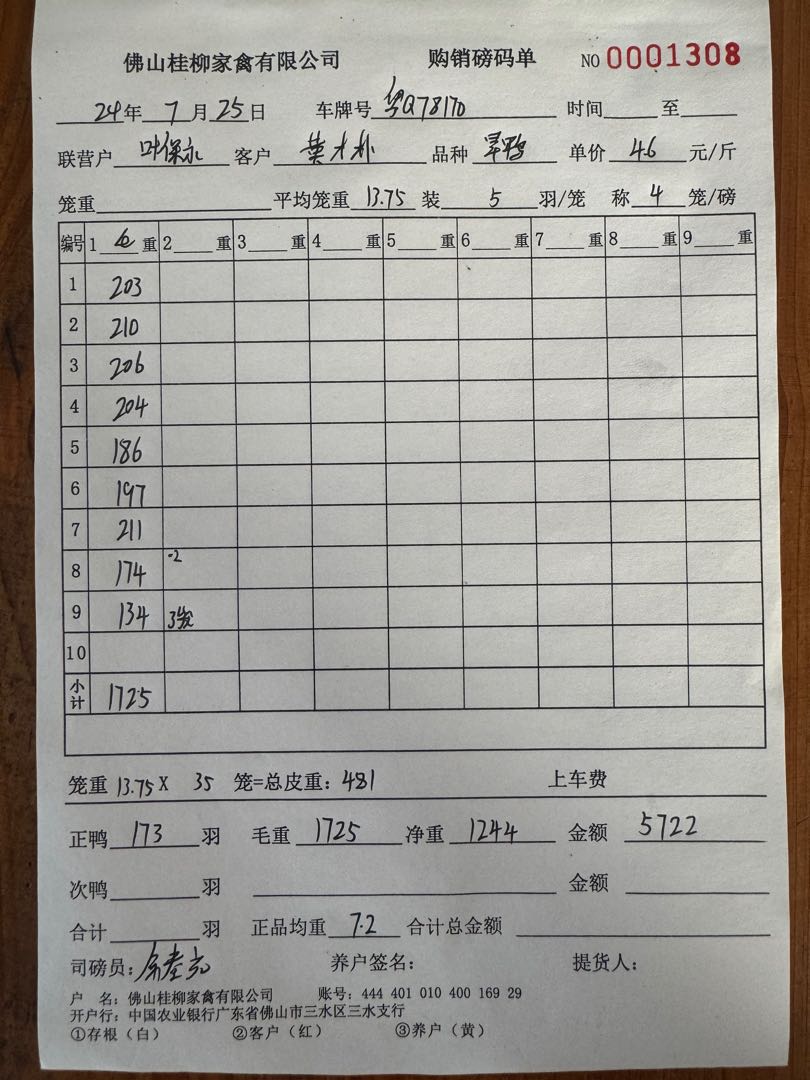 佛山桂柳家禽有限公司 购销磅码单 NO 0001308
24年 7月 25日 车牌号 粤Q78170 时间 至
联营户 叶保永 客户 品种 旱鸭 单价 4.6 元/斤
笼重 平均笼重 13.75 装 5 羽/笼 称 4 笼/磅
编号 1 重 2 重 3 重 4 重 5 重 6 重 7 重 8 重 9 重
1 203
2 210
3 206
4 204
5 186
6 197
7 211
8 174 -2
9 134 3
10
小计 1725
笼重 13.75 X 35 笼=总皮重: 481 上车费
正鸭 173 羽 毛重 1725 净重 1244 金额 5722
次鸭 羽 金额
合计 羽 正品均重 7.2 合计总金额
司磅员: 养户签名: 提货人:
户 名: 佛山桂柳家禽有限公司 账号: 444 401 010 400 169 29
开户行: 中国农业银行广东省佛山市三水区三水支行
①存根(白) ②客户(红) ③养户(黄)